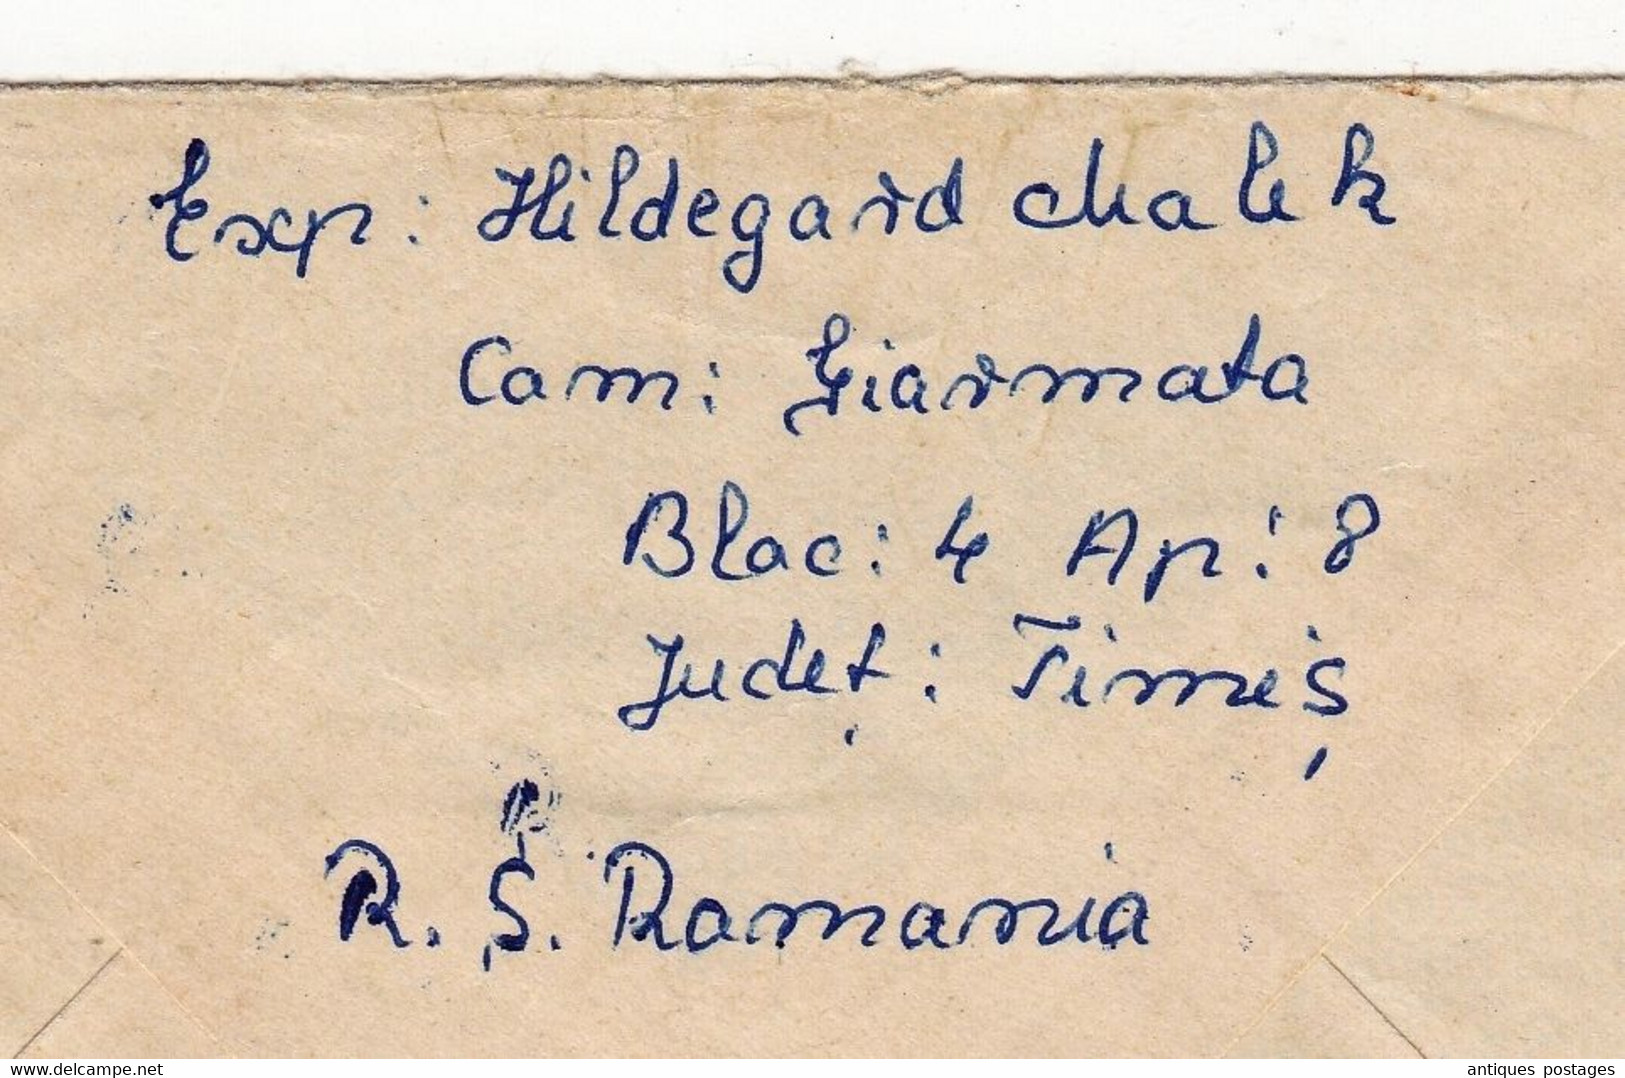 Exp: Hildegard Malek
Com: Giarmata
Bloc: 4 Ap: 8
Județ: Timiș
R. S. Romania
www.delcampe.net
antiques postages